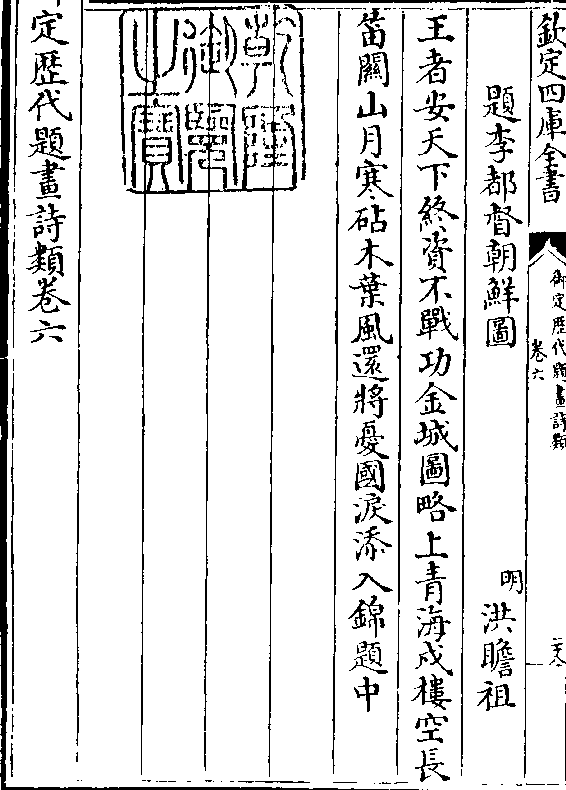 欽定四庫全書
御定歷代題畫詩類
卷六
題李都督朝鮮圖
明
洪瞻祖
王者安天下終資不戰功金城圖略上青海戍樓空長
笛關山月寒砧木葉風還將憂國淚添入錦題中
乾隆御覽之寶
定歷代題畫詩類卷六